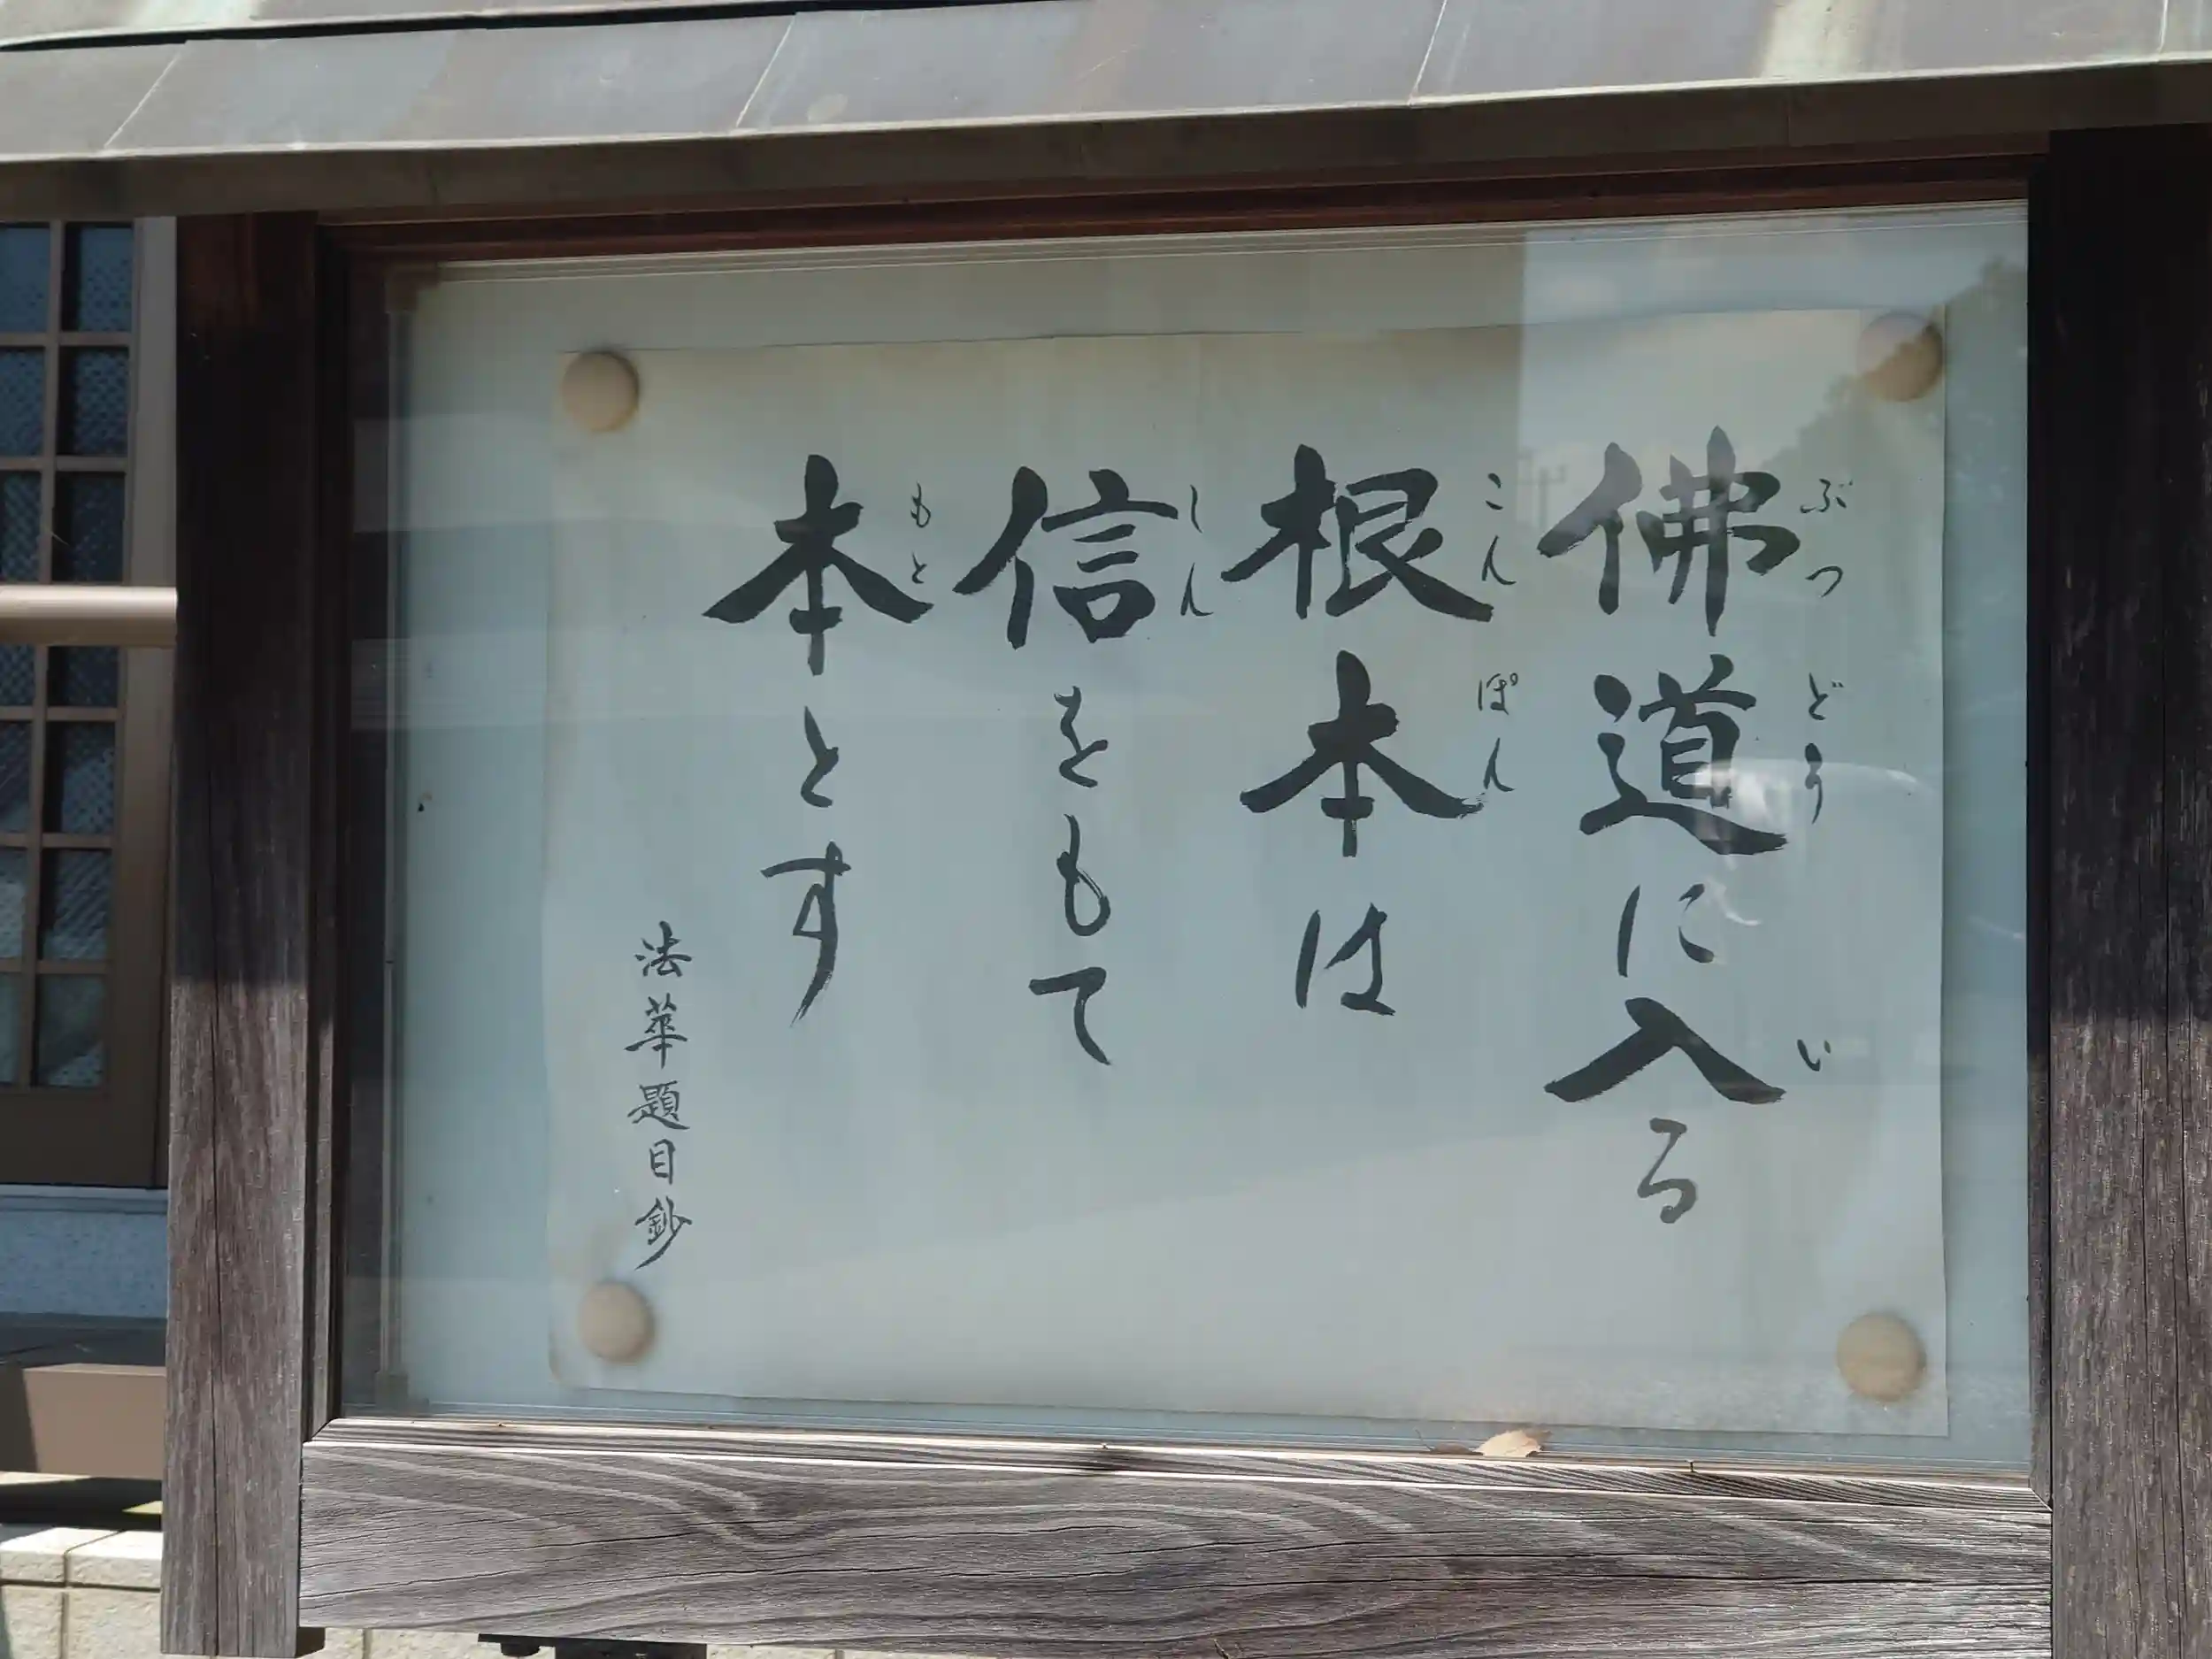 佛道に入る
ぶつどう い
根本は
こんぽん
信をもて
しん
本とす
もと
法華題目鈔